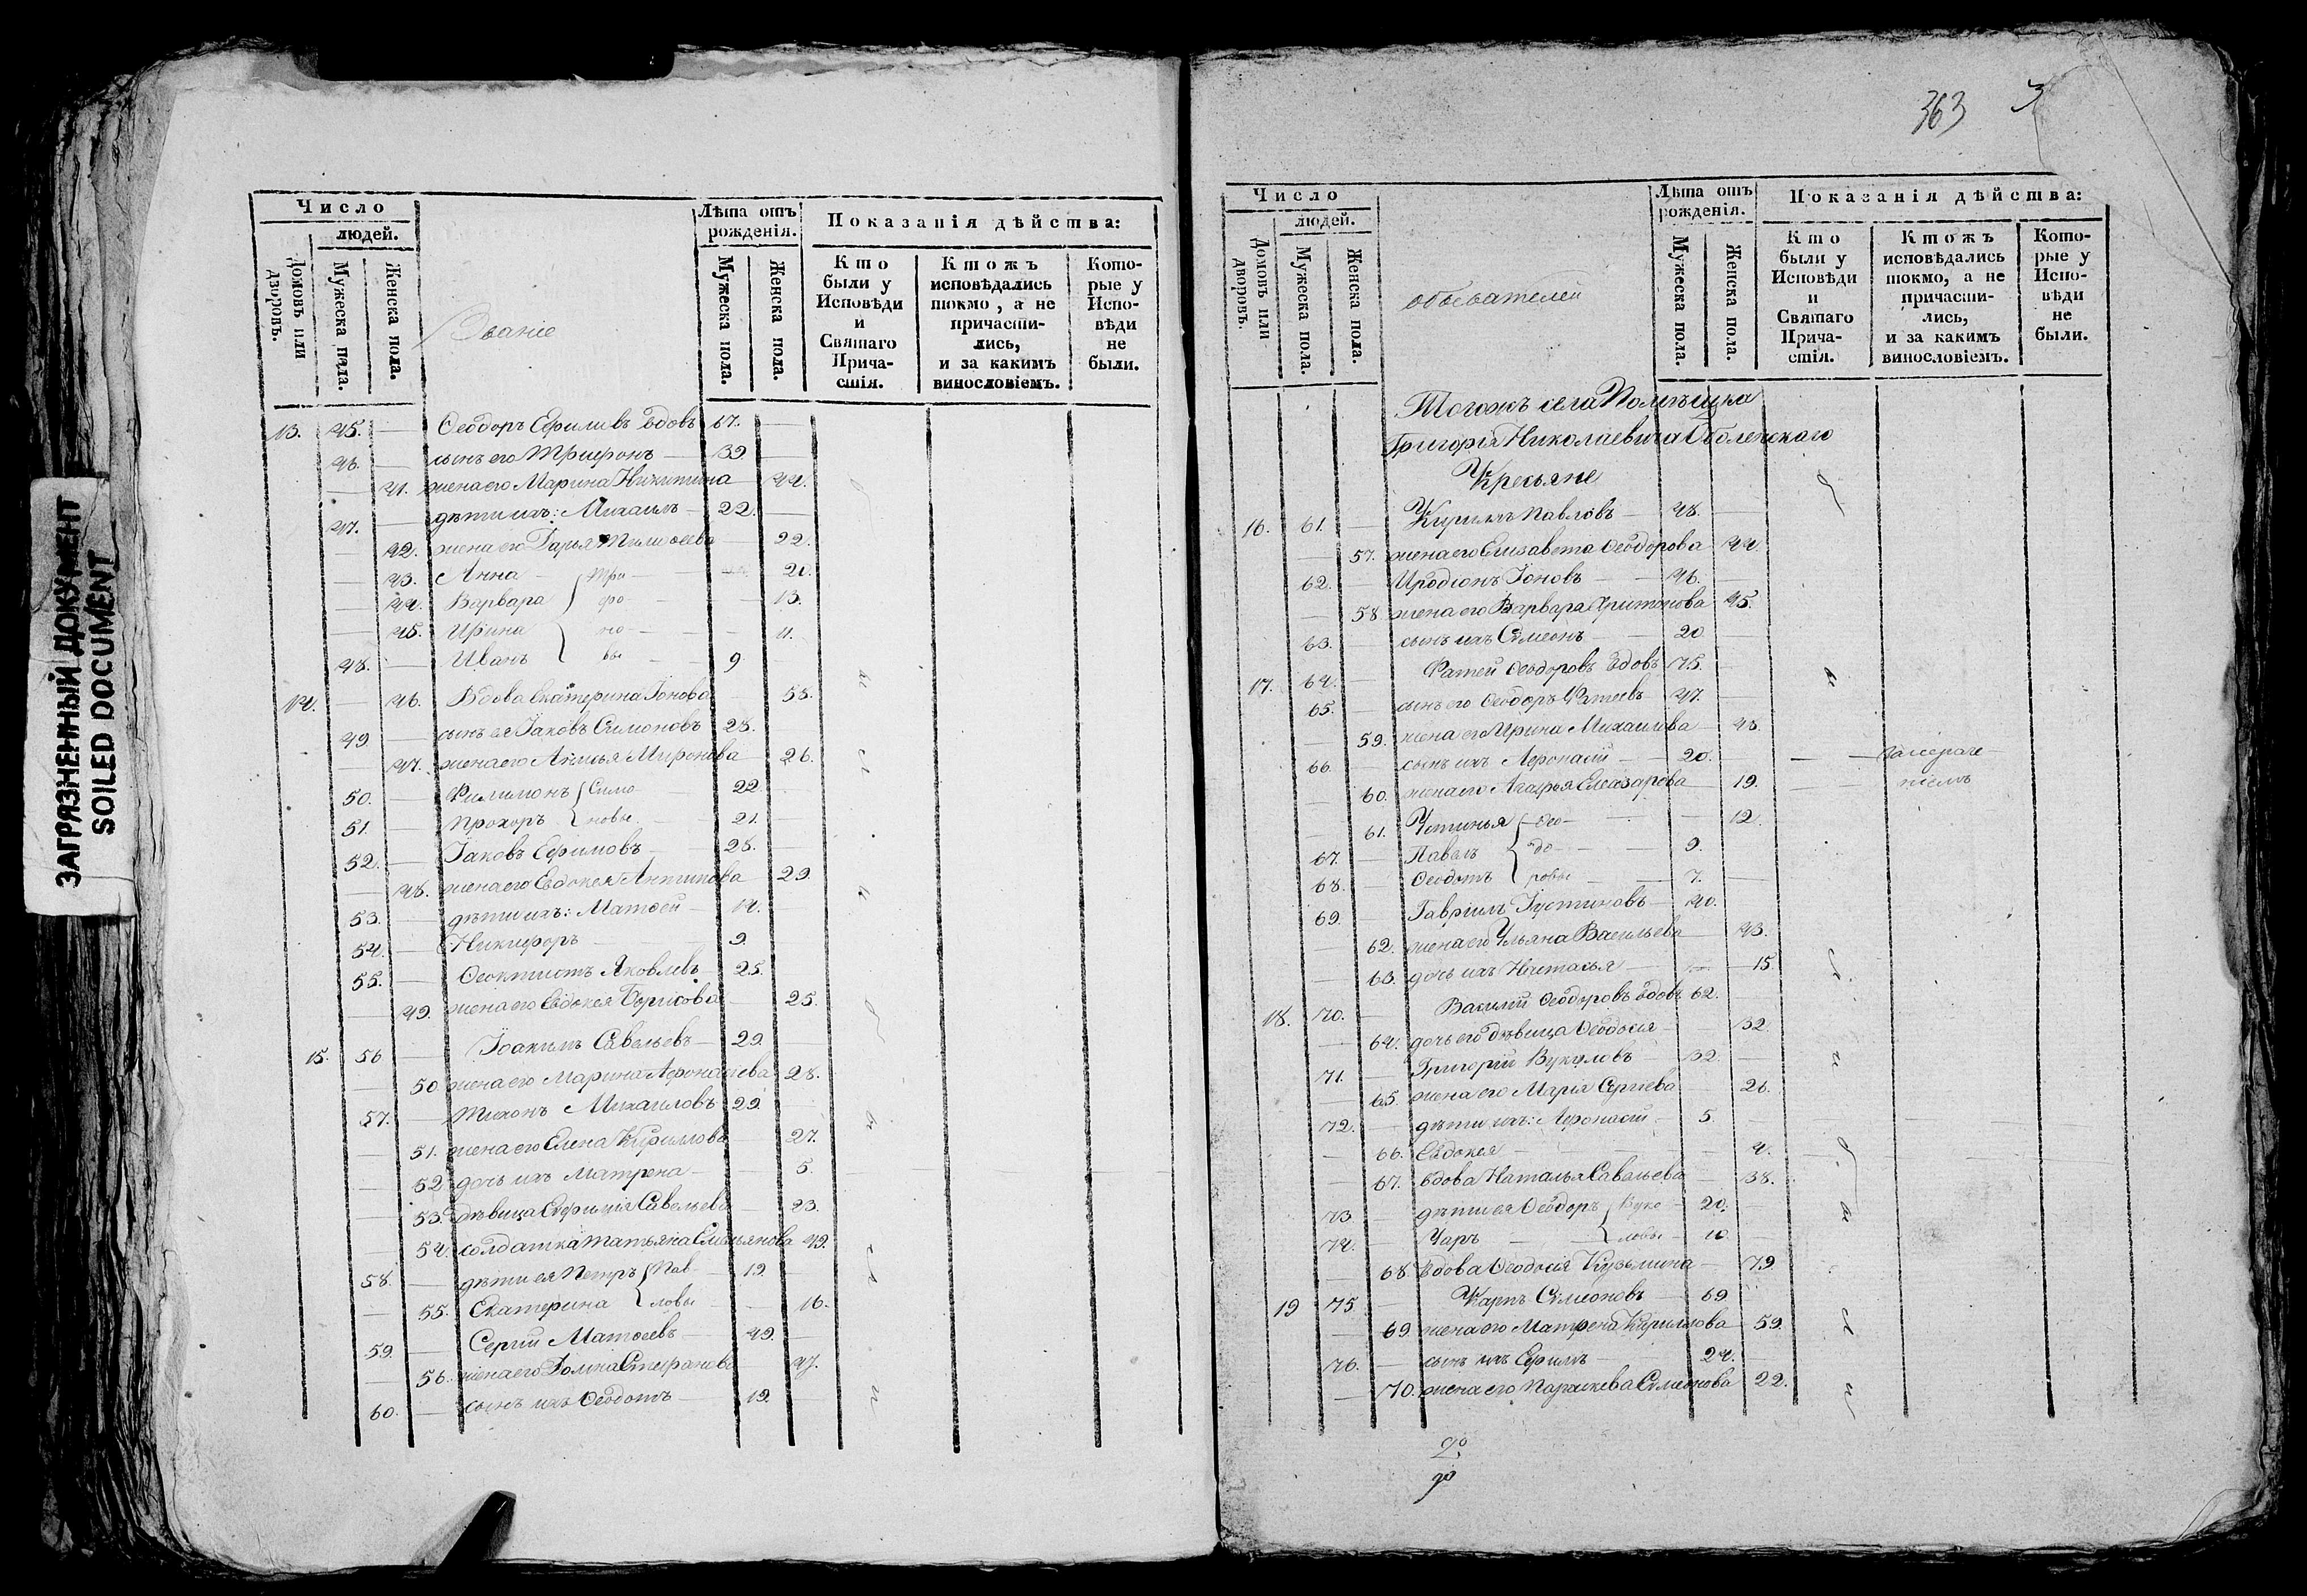 ЗАГРЯЗНЕННЫЙ ДОКУМЕНТ
SOILED DOCUMENT
Число
людей.
Домовъ или дворовъ.
Мужеска пола.
Женска пола.
Званіе
Лѣта отъ рожденія.
Мужеска пола.
Женска пола.
Показанія дѣйства:
Кто были у Исповѣди и Святаго Прича-стія.
Ктожъ исповѣдались токмо, а не причасти-лись, и за какимъ винословіемъ.
Кото-рые у Испо-вѣди не были.
13. 45. — Ѳеодоръ Ефимовъ вдовъ 67. —
46. — сынъ его Трифонъ — 39 —
— 41. жена его Марина Никитина — 44.
47. — дѣти ихъ: Михаилъ — 22. —
— 42. жена его Дарья Тимоѳеева — 22.
— 43. Анна — Три — 21.
— 44. Варвара фо — 13.
— 45. Ирина но — 11.
48. — Иванъ вы — 9
14. — 46. Вдова Екатерина Іонова — 58.
49 — сынъ ея Іаковъ Симоновъ 28. —
— 47. жена его Аксинья Миронова — 26.
50. — Филимонъ Симо — 22
51. — Прохоръ новы — 21.
52. — Іаковъ Ефимовъ — 28. —
— 48. жена его Евдокея Антипова 29.
53. — дѣти ихъ: Матѳей — 14.
54. — Никифоръ — 9.
55. — Ѳеоктистъ Яковлевъ 25.
— 49. жена его Евдокея Борисова — 25.
15. 56 — Іоакимъ Савельевъ — 29. —
— 50 жена его Марина Афонасіева 28.
57. — Тихонъ Михаиловъ 29.
— 51. жена его Елена Кириллова — 27.
— 52 дочь ихъ Матрена — 5.
— 53. дѣвица Ефимія Савельева — 23.
— 54. солдатка Татьяна Емельянова 49.
58. — дѣти ея Петръ Пав — 19
— 55. Екатерина ловы — 16.
59. — Сергій Матѳеевъ — 49. —
— 56. жена его Домна Стефанова — 47.
60. — сынъ ихъ Ѳеодотъ — 19.
363
Число
людей.
Домовъ или дворовъ.
Мужеска пола.
Женска пола.
обывателей
Лѣта отъ рожденія.
Мужеска пола.
Женска пола.
Показанія дѣйства:
Кто были у Исповѣди и Святаго Прича-стія.
Ктожъ исповѣдались токмо, а не причасти-лись, и за какимъ винословіемъ.
Кото-рые у Испо-вѣди не были.
Тогожъ села Помѣщика
Григорія Николаевича Оболенскаго
Кресьяне
16. 61. — Кириллъ Павловъ — 48. —
— 57. жена его Елисавета Ѳеодорова 44.
62. — Иродіонъ Іоновъ — 46. —
— 58 жена его Варвара Харитонова 45.
63. — сынъ ихъ Симеонъ — 20
17. 64. — Фатей Ѳеодоровъ вдовъ 75. —
65. — сынъ его Ѳеодоръ Фатеевъ 47. —
— 59. жена его Ирина Михаилова — 48.
66 — сынъ ихъ Афонасій — 20. —
— 60. жена его Агафья Елеазарова — 19.
— 61. Устинья Ѳео — 12.
67. — Павелъ до — 9.
68. — Ѳеодотъ ровы — 7. —
69. — Гавріилъ Іустиновъ — 40.
— 62. жена его Ульяна Васильева — 43.
— 63. дочь ихъ Настасья — 15
18. 70. — Василій Ѳеодоровъ вдовъ 62. —
— 64. дочь его дѣвица Ѳеодосія — 32.
71. — Григорій Вукуловъ — 32. —
— 65. жена его Марія Сергіева — 26.
72. — дѣти ихъ: Афонасій — 5. —
— 66. Евдокея — 4.
— 67. вдова Наталья Савельева — 38.
73 — дѣти ея Ѳеодоръ Вуко — 20.
74. — Уаръ ловы — 10
— 68. Вдова Ѳеодосія Кузьмина — 79.
19 75. — Карпъ Симеоновъ — 69
— 69. жена его Матрена Кириллова 59.
76. — сынъ ихъ Ефимъ — 24. —
— 70. жена его Параскева Симеонова 22.